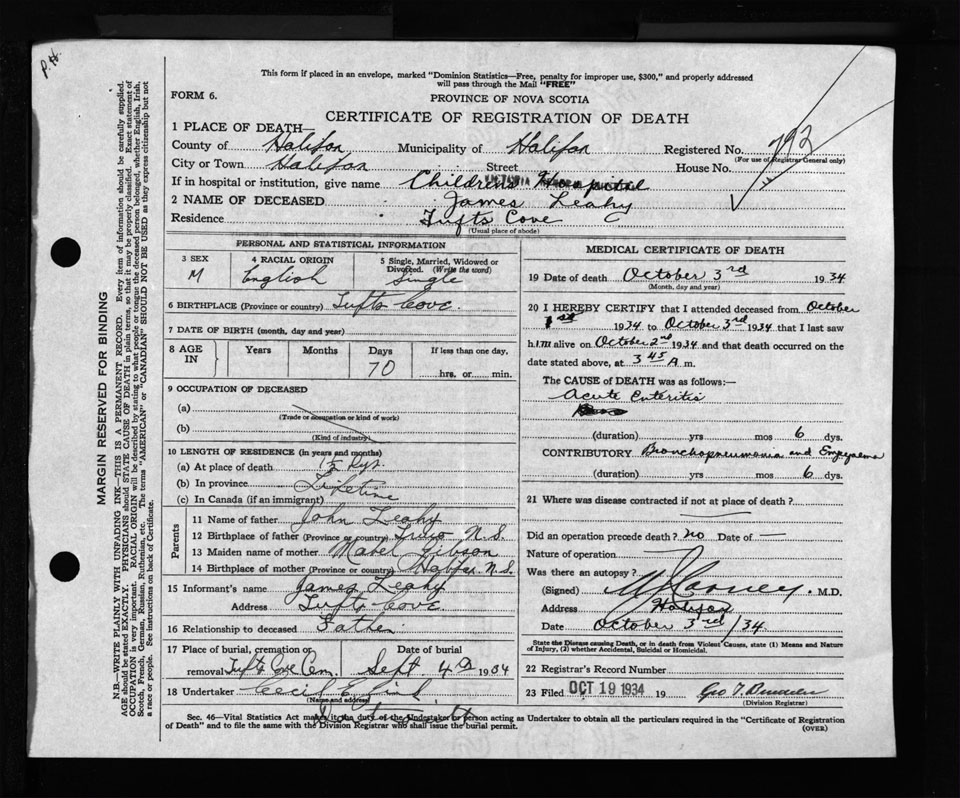 P.H.
This form if placed in an envelope, marked "Dominion Statistics—Free, penalty for improper use, $300," and properly addressed
will pass through the Mail "FREE"
FORM 6.
PROVINCE OF NOVA SCOTIA
CERTIFICATE OF REGISTRATION OF DEATH
1 PLACE OF DEATH—
County of Halifax Municipality of Halifax Registered No. 792
(For use of Registrar General only)
City or Town Halifax Street House No.
If in hospital or institution, give name Childrens Hospital
2 NAME OF DECEASED James Leahy
Residence Tufts Cove
(Usual place of abode)
PERSONAL AND STATISTICAL INFORMATION
3 SEX 4 RACIAL ORIGIN 5 Single, Married, Widowed or Divorced. (Write the word)
M English Single
6 BIRTHPLACE (Province or country) Tufts Cove.
7 DATE OF BIRTH (month, day and year)
8 AGE IN Years Months Days If less than one day,
70 hrs. or min.
9 OCCUPATION OF DECEASED
(a)
(Trade or occupation or kind of work)
(b)
(Kind of industry)
10 LENGTH OF RESIDENCE (in years and months)
(a) At place of death 1½ Dys.
(b) In province Lifetime
(c) In Canada (if an immigrant)
Parents
11 Name of father John Leahy
12 Birthplace of father (Province or country) Truro N.S.
13 Maiden name of mother Mabel Gibson
14 Birthplace of mother (Province or country) Halifax N.S.
15 Informant's name James Leahy
Address Tufts Cove
16 Relationship to deceased Father
17 Place of burial, cremation or Date of burial
removal Tufts Cove Cem. Sept 4th 1934
18 Undertaker Cecil E.
(Name and address)
MEDICAL CERTIFICATE OF DEATH
19 Date of death October 3rd 1934
(Month, day and year)
20 I HEREBY CERTIFY that I attended deceased from October
1st 1934 to October 3rd 1934 that I last saw
him alive on October 2nd 1934 and that death occurred on the
date stated above, at 3 45 A m.
The CAUSE of DEATH was as follows:—
Acute Enteritis
(duration) yrs mos 6 dys.
CONTRIBUTORY Bronchopneumonia and Empyema
(duration) yrs mos 6 dys.
21 Where was disease contracted if not at place of death?
Did an operation precede death? no Date of —
Nature of operation
Was there an autopsy?
(Signed) M.D.
Address Halifax
Date October 3rd/34
State the Disease causing Death, or in death from Violent Causes, state (1) Means and
Nature of Injury, (2) whether Accidental, Suicidal or Homicidal.
22 Registrar's Record Number
23 Filed OCT 19 1934 19 Geo T.
(Division Registrar)
Sec. 46—Vital Statistics Act makes it the duty of the Undertaker or person acting as Undertaker to obtain all the particulars required in the "Certificate of Registration
of Death" and to file the same with the Division Registrar who shall issue the burial permit.
(OVER)
MARGIN RESERVED FOR BINDING
N.B.—WRITE PLAINLY WITH UNFADING INK—THIS IS A PERMANENT RECORD. Every item of information should be carefully supplied.
AGE should be stated EXACTLY. PHYSICIANS should STATE CAUSE OF DEATH in plain terms, so that it may be properly classified. Exact statement of
OCCUPATION is very important. RACIAL ORIGIN will be described by stating to what people or tongue the deceased person belonged, whether English, Irish,
Scotch, French, German, Russian, Ruthenian, etc. The terms "AMERICAN" or "CANADIAN" SHOULD NOT BE USED as they express citizenship but not
a race or people. See instructions on back of Certificate.